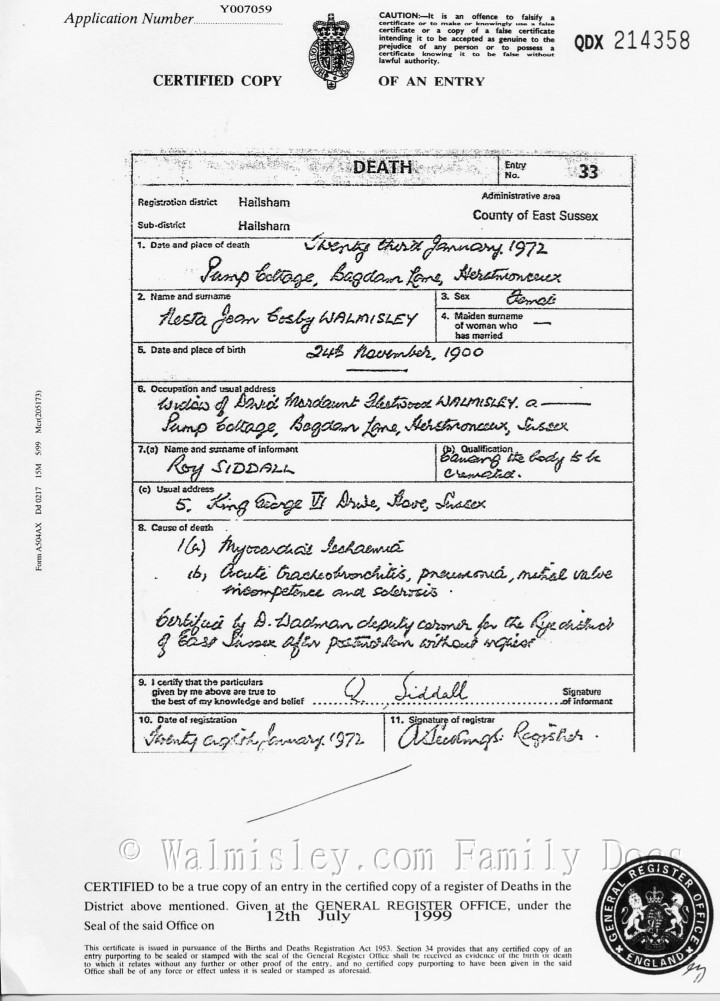 Y007059
Application Number
CAUTION:—It is an offence to falsify a
certificate or to make or knowingly use a false
certificate or a copy of a false certificate
intending it to be accepted as genuine to the
prejudice of any person or to possess a
certificate knowing it to be false without
lawful authority.
QDX 214358
CERTIFIED COPY OF AN ENTRY
DEATH Entry No. 33
Registration district Hailsham Administrative area
Sub-district Hailsham County of East Sussex
1. Date and place of death Twenty third January 1972
Pump Cottage, Bagdam Lane, Herstmonceux
2. Name and surname
Nesta Joan Cosby WALMISLEY
3. Sex Female
4. Maiden surname of woman who has married —
5. Date and place of birth 24th November, 1900
6. Occupation and usual address
Widow of David Mordaunt Fleetwood WALMISLEY. a
Pump Cottage, Bagdam Lane, Herstmonceux, Sussex
7.(a) Name and surname of informant
Roy SIDDALL
(b) Qualification
Causing the body to be
cremated.
(c) Usual address
5, King George VI Drive, Hove, Sussex
8. Cause of death
1(a) Myocardial Ischaemia
(b) Acute tracheobronchitis, pneumonia, mitral valve
incompetence and sclerosis.
Certified by D. Wadman deputy coroner for the Rye district
of East Sussex after postmortem without inquest
9. I certify that the particulars
given by me above are true to
the best of my knowledge and belief
Siddall
Signature
of informant
10. Date of registration
Twenty eighth January 1972
11. Signature of registrar
Registrar.
Form A504AX Dd 0217 15M 5/99 Mcr(205173)
© Walmisley.com Family Docs
CERTIFIED to be a true copy of an entry in the certified copy of a register of Deaths in the
District above mentioned. Given at the GENERAL REGISTER OFFICE, under the
Seal of the said Office on 12th July 1999
This certificate is issued in pursuance of the Births and Deaths Registration Act 1953. Section 34 provides that any certified copy of an
entry purporting to be sealed or stamped with the seal of the General Register Office shall be received as evidence of the birth or death
to which it relates without any further or other proof of the entry, and no certified copy purporting to have been given in the said
Office shall be of any force or effect unless it is sealed or stamped as aforesaid.
GENERAL REGISTER OFFICE
ENGLAND